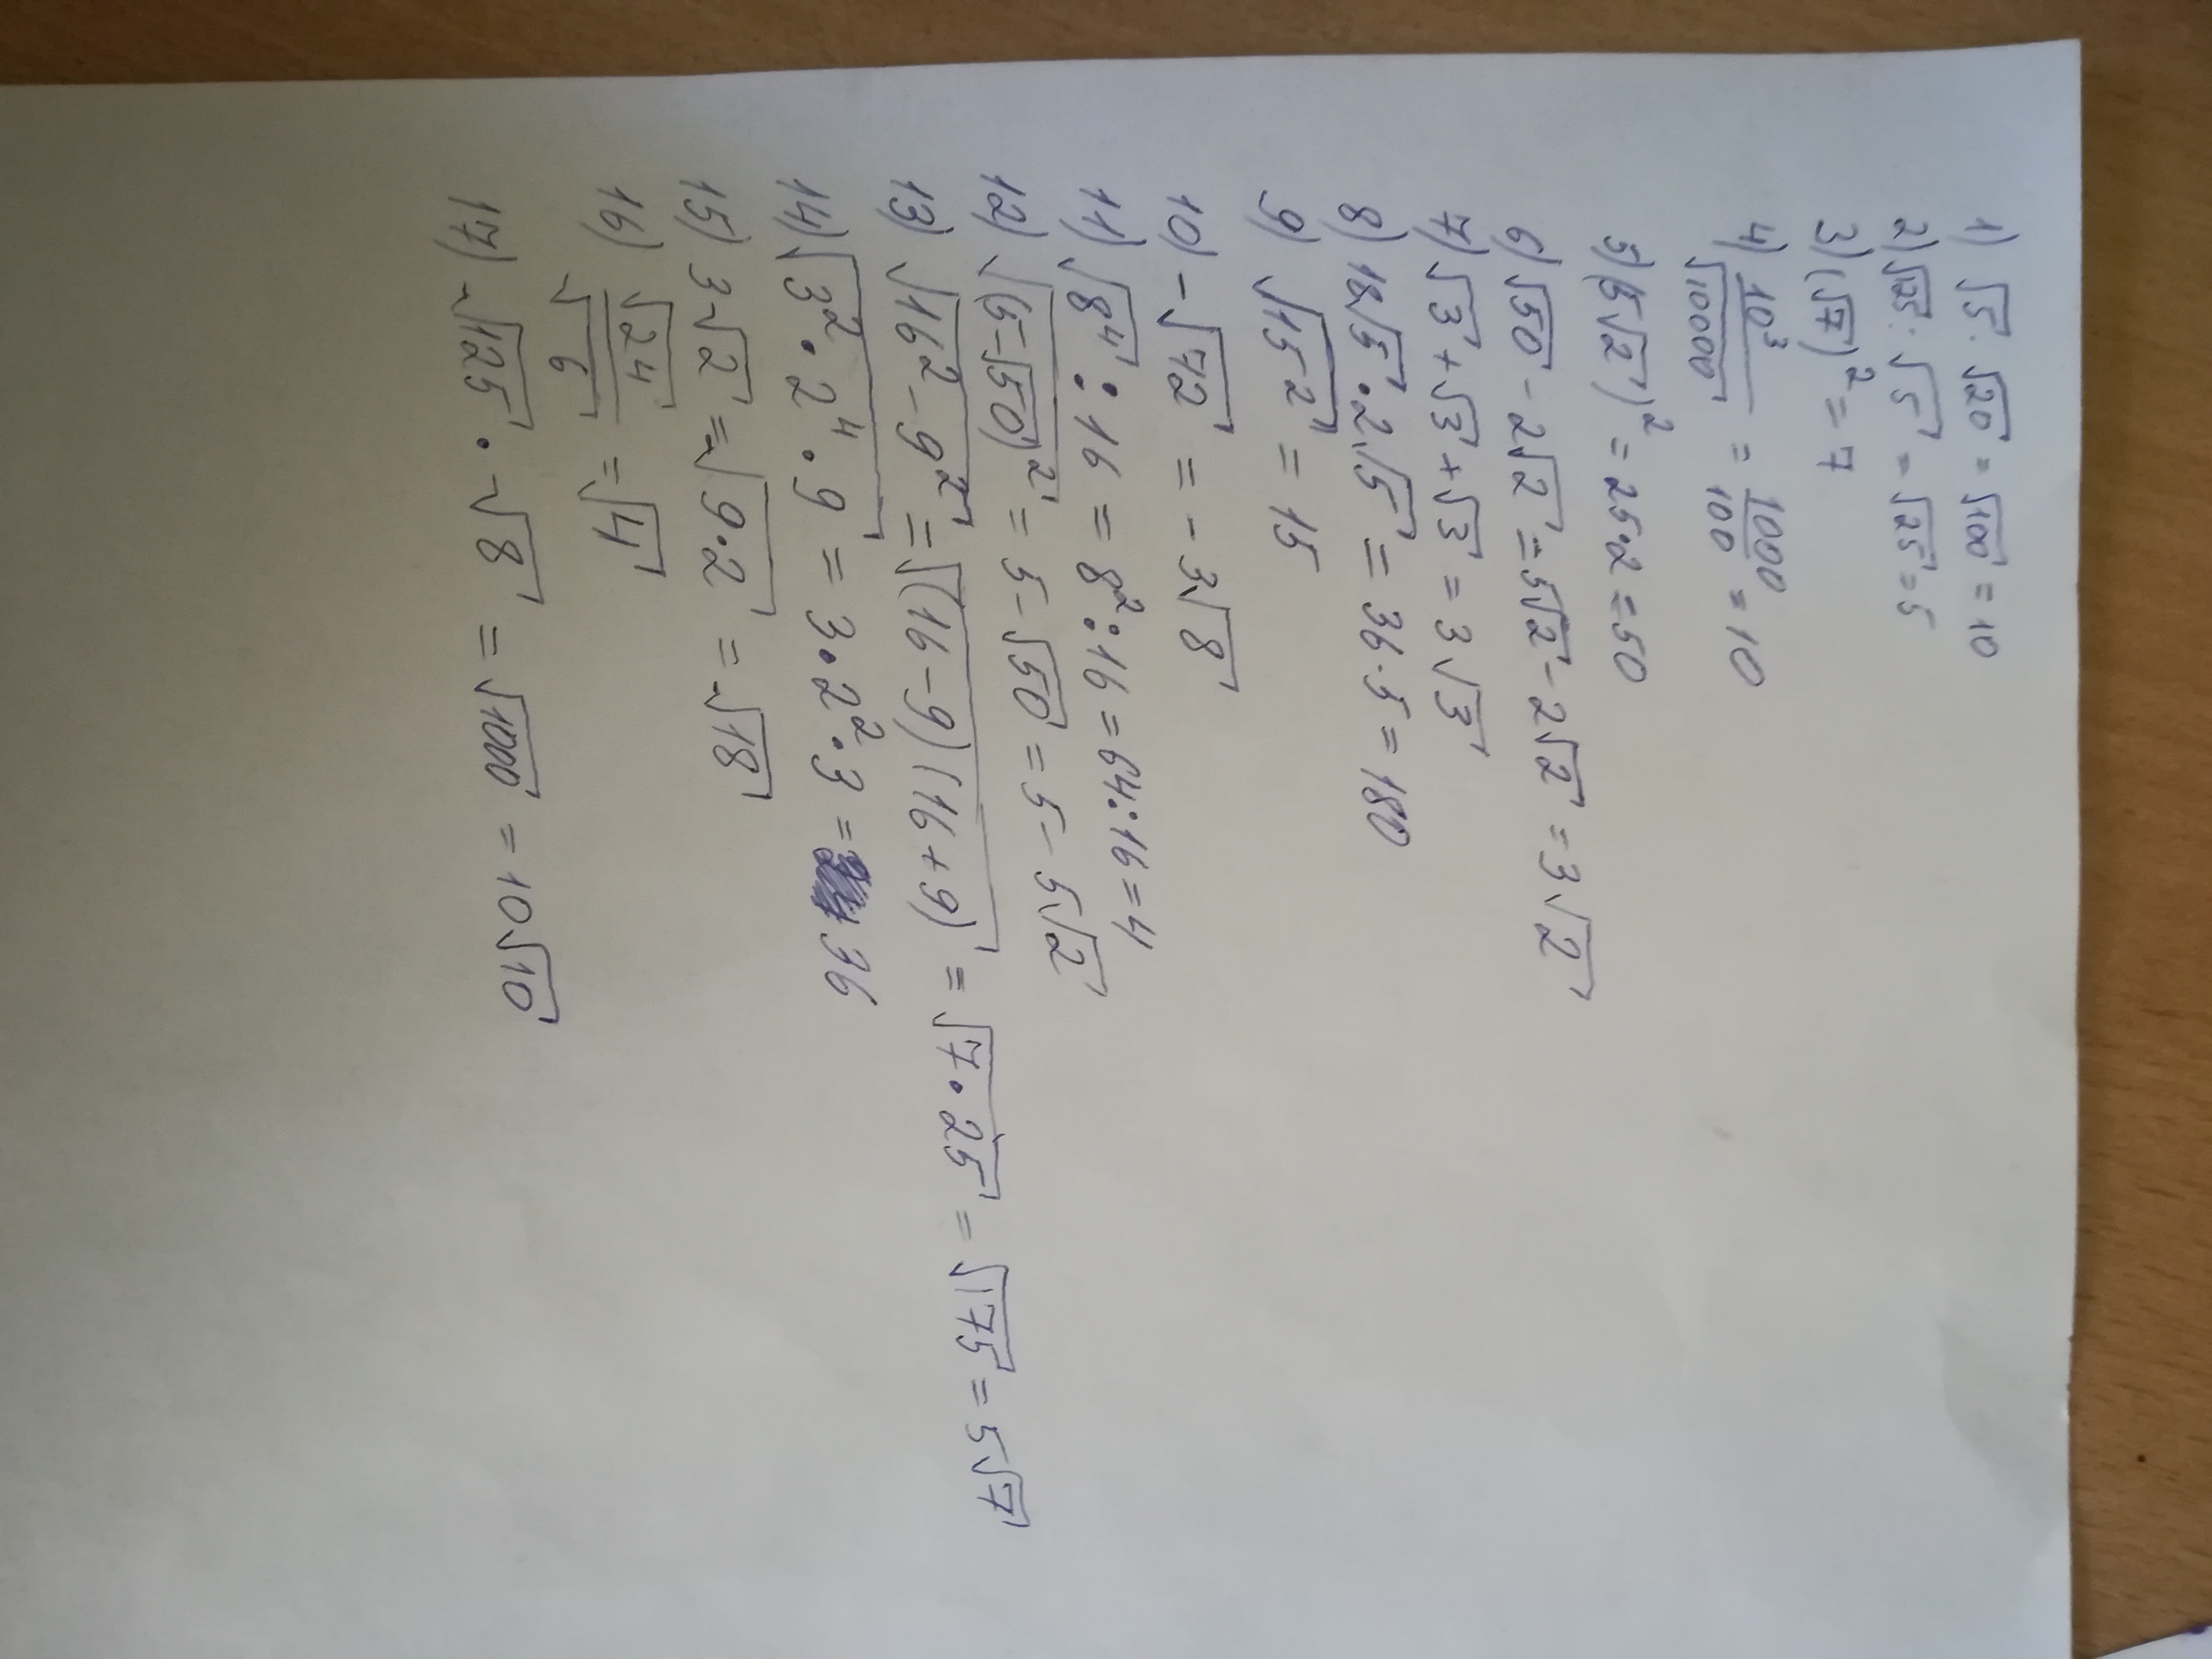 1) √5 · √20 = √100 = 10
2) √125 : √5 = √25 = 5
3) (√7)² = 7
4) 10³/√10000 = 1000/100 = 10
5) (5√2)² = 25·2 = 50
6) √50 - 2√2 = 5√2 - 2√2 = 3√2
7) √3 + √3 + √3 = 3√3
8) 18√5 · 2√5 = 36·5 = 180
9) √15² = 15
10) -√72 = -3√8
11) √8⁴ : 16 = 8² : 16 = 64 : 16 = 4
12) √(5-√50)² = 5-√50 = 5-5√2
13) √16² - 9² = √(16-9)(16+9) = √7·25 = √175 = 5√7
14) √3² · 2⁴ · 9 = 3·2²·3 = 36
15) 3√2 = √9·2 = √18
16) √24/√6 = √4
17) √125 · √8 = √1000 = 10√10